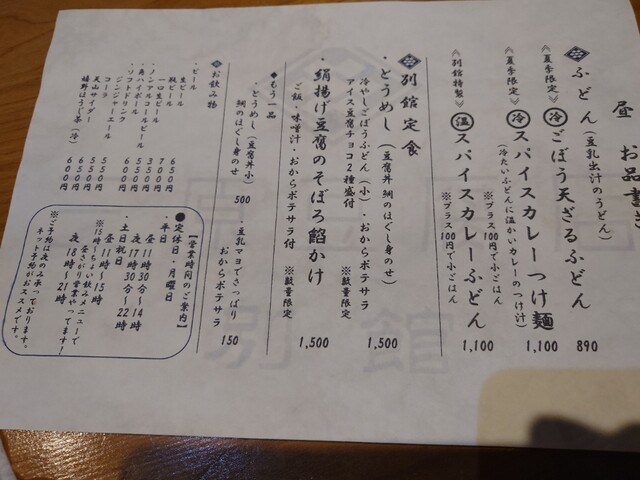 昼 お品書き
ふどん(豆乳出汁のうどん)
《夏季限定》
冷 ごぼう天ざるふどん 890
《夏季限定》
冷 スパイスカレーつけ麺 1,100
(冷たいふどんに温かいカレーのつけ汁)
※プラス100円で小ごはん
《別館特製》
温 スパイスカレーふどん 1,100
※プラス100円で小ごはん
別館定食
・とうめし(豆腐丼 鯛のほぐし身のせ)
冷やしごぼうふどん(小)・おからポテサラ
アイス豆腐チョコ2種盛付 ※数量限定 1,500
・絹揚げ豆腐のそぼろ餡かけ 1,500
ご飯・味噌汁・おからポテサラ付 ※数量限定
◆もう一品
・とうめし(豆腐丼 小) 500
鯛のほぐし身のせ
・豆乳マヨでさっぱり
おからポテサラ 150
お飲み物
・ビール
生ビール 650円
瓶ビール 700円
一口生ビール 350円
・ノンアルコールビール 450円
・角ハイボール
・ソフトドリンク
ジンジャーエール
コーラ 550円
天山サイダー 550円
嬉野ほうじ茶(冷) 600円
【営業時間のご案内】
●定休日・月曜日
・平日
昼 11時30分〜14時
夜 17時30分〜22時
・土日祝日
昼 11時〜15時
※15時〜ちょい飲みメニューで
昼さがり営業やってます!
夜 18時〜21時
※ご予約は夜のみ承っております。
ネット予約がおススメです。